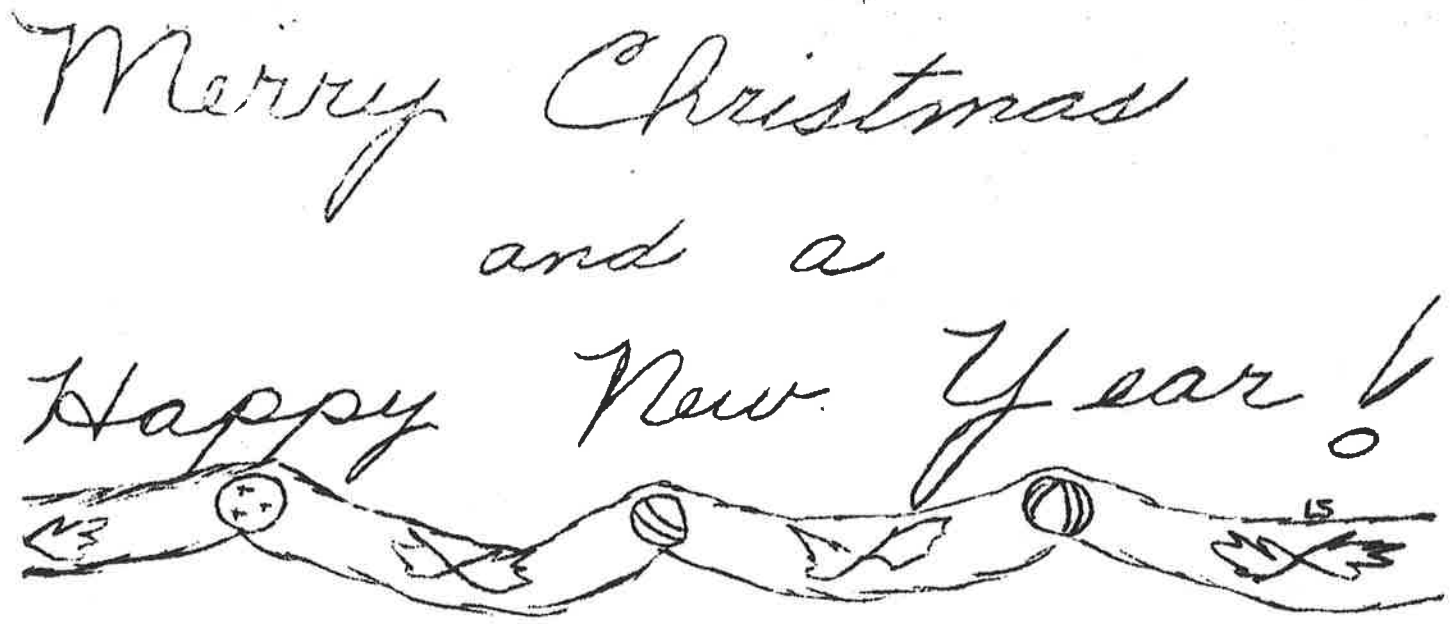 Merry Christmas
and a
Happy New Year!
LS